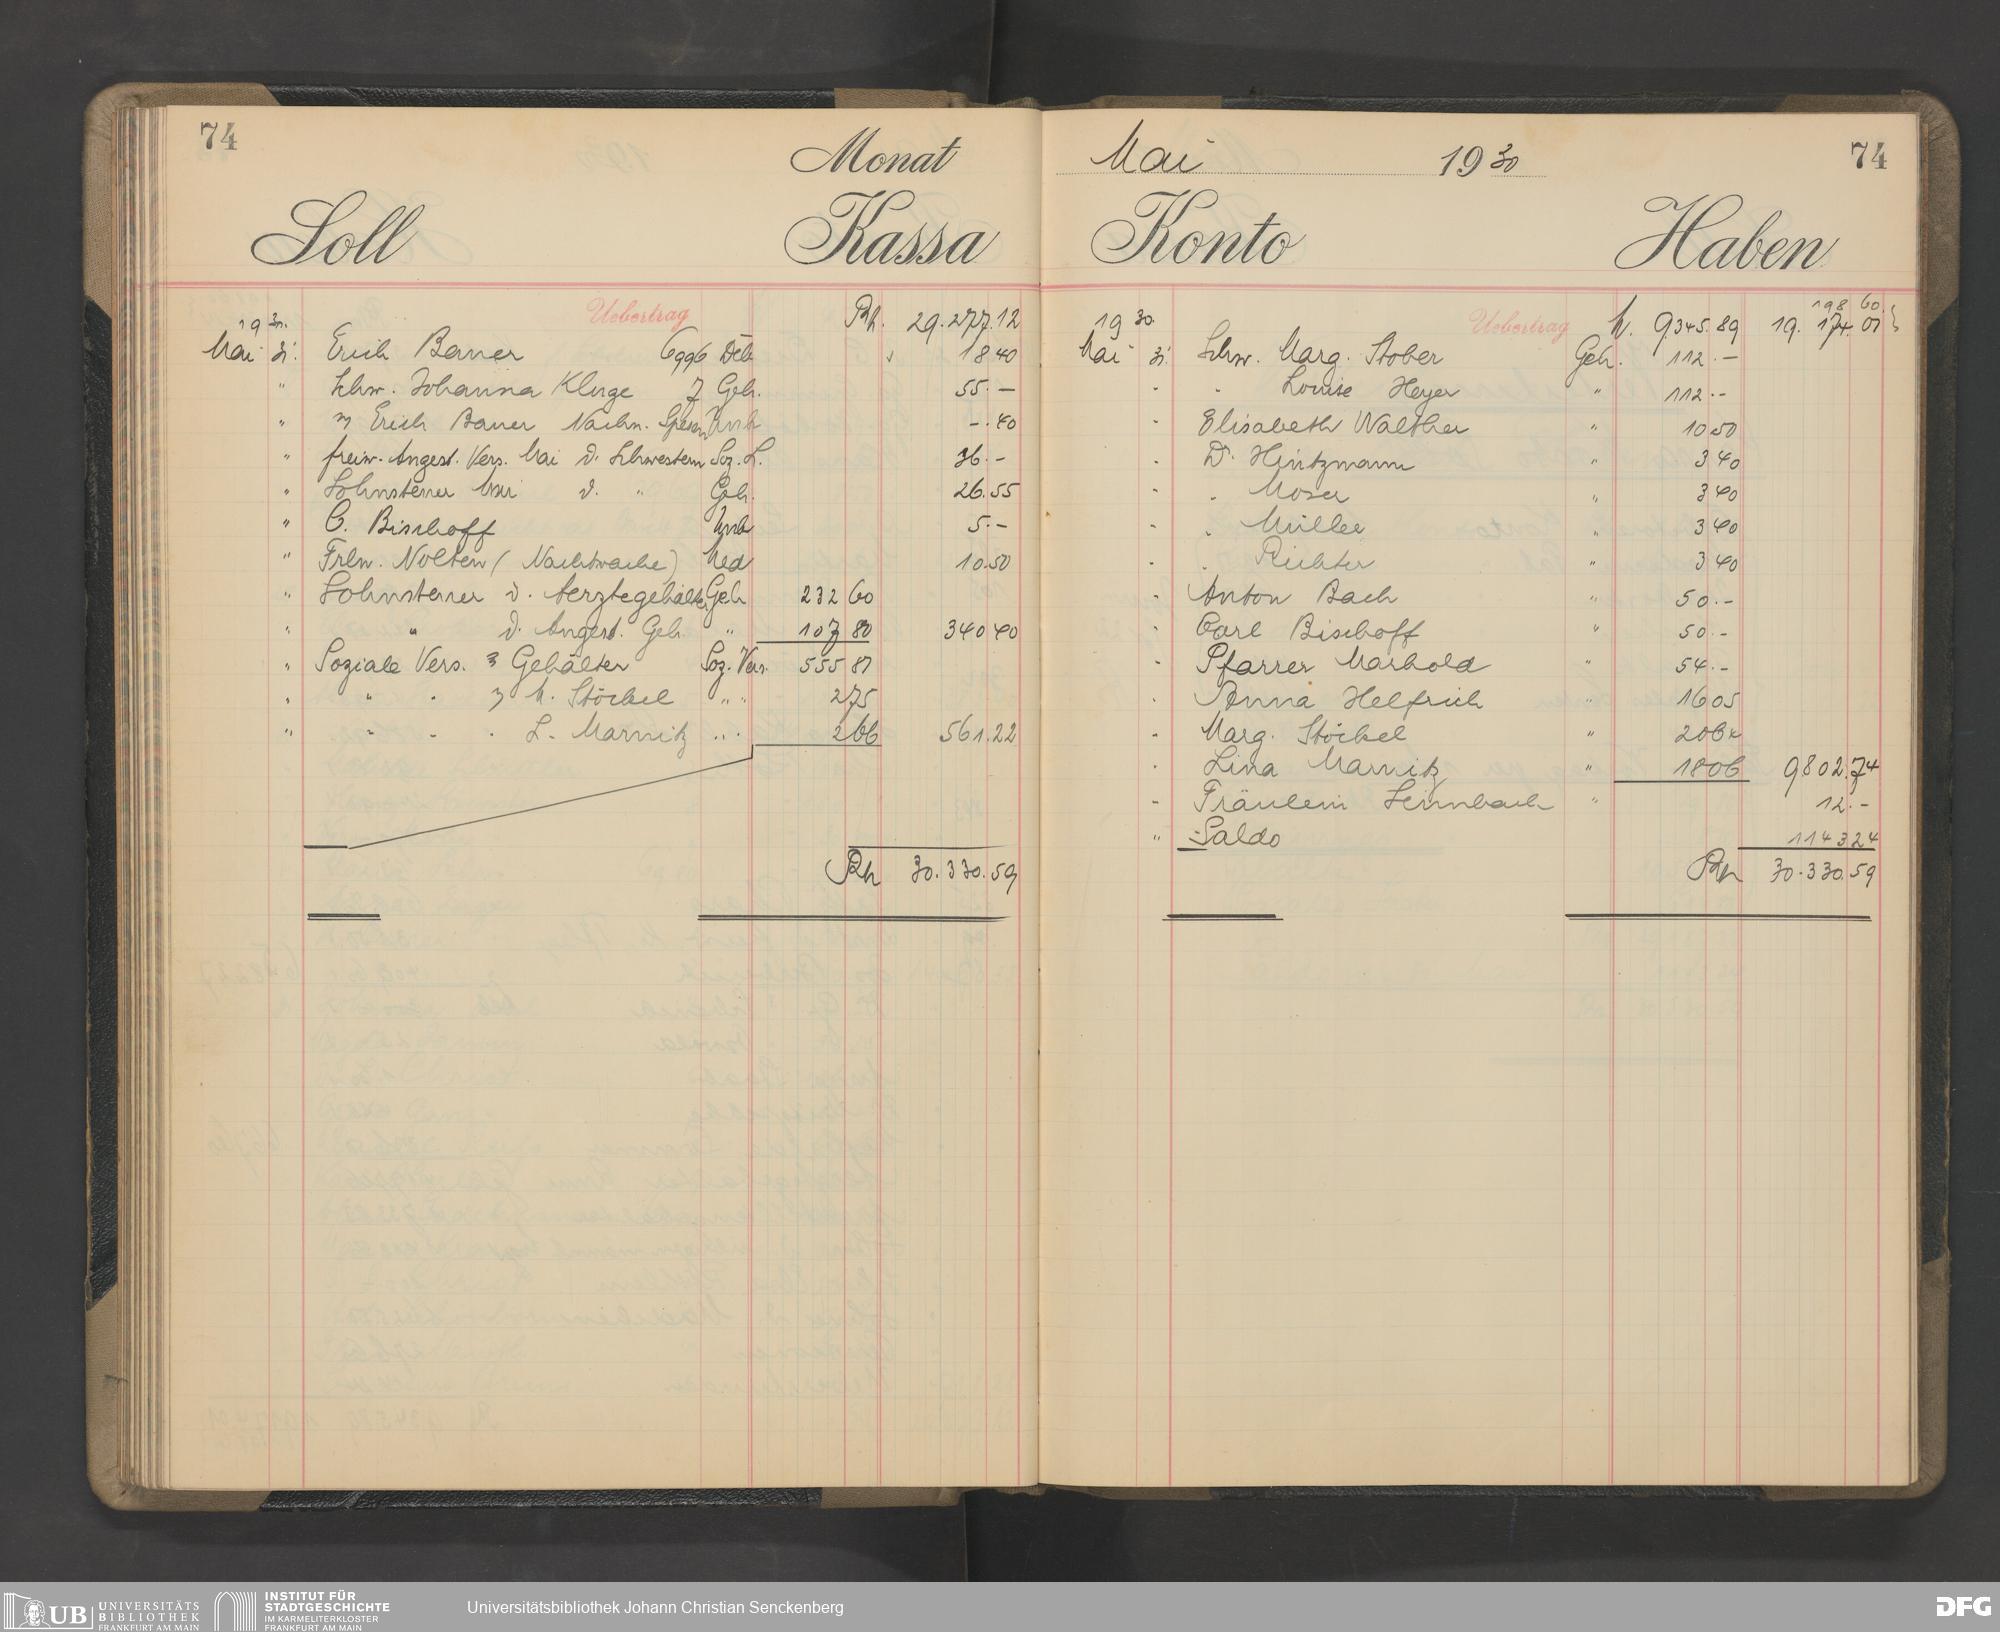 74
Monat
Soll Kassa
Uebertrag Rh. 29.277.12
1930.
Mai 31. Erich Bauer 6996 Deb 18 40
" Schw. Johanna Kluge 7 Geh. 55.-
" Erich Bauer Nachn. Spesen Unk -.40
" freiw. Angest. Vers. Mai d. Schwestern Soz. L. 36.-
" Lohnsteuer Mai d. " Geh. 26.55
" C. Bischoff Unk 5.-
" Frln. Nolten (Nachtwache) Med 10.50
" Lohnsteuer d. Aerztegehälter Geh 232 60
" " d. Angest. Geh. " 107 80 340 40
" Soziale Vers. Gehälter Soz. Vers. 555 81
" " " M. Stöckel " " 2 75
" " " " L. Marnitz " " 2 66 561.22
Rh 30.330.59
Mai 1930
74
Konto Haben
198 60.
Uebertrag 9345.89 19.174.01
1930.
Mai 31. Schw. Marg. Stober Geh. 112.-
" " Louise Heyer " 112.-
" Elisabeth Walther " 10 50
" Dr. Hintzmann " 3 40
" " Moser " 3 40
" " Müller " 3 40
" " Richter " 3 40
" Anton Bach " 50.-
" Carl Bischoff " 50.-
" Pfarrer Marhold " 54.-
" Anna Helfrich " 16 05
" Marg. Stöckel " 20 64
" Lina Marnitz " 18 06 9802.74
" Fräulein Leimbach " 12.-
" Saldo 1143 24
Rh 30.330.59
UB UNIVERSITÄTS
BIBLIOTHEK
FRANKFURT AM MAIN
INSTITUT FÜR
STADTGESCHICHTE
IM KARMELITERKLOSTER
FRANKFURT AM MAIN
Universitätsbibliothek Johann Christian Senckenberg
DFG